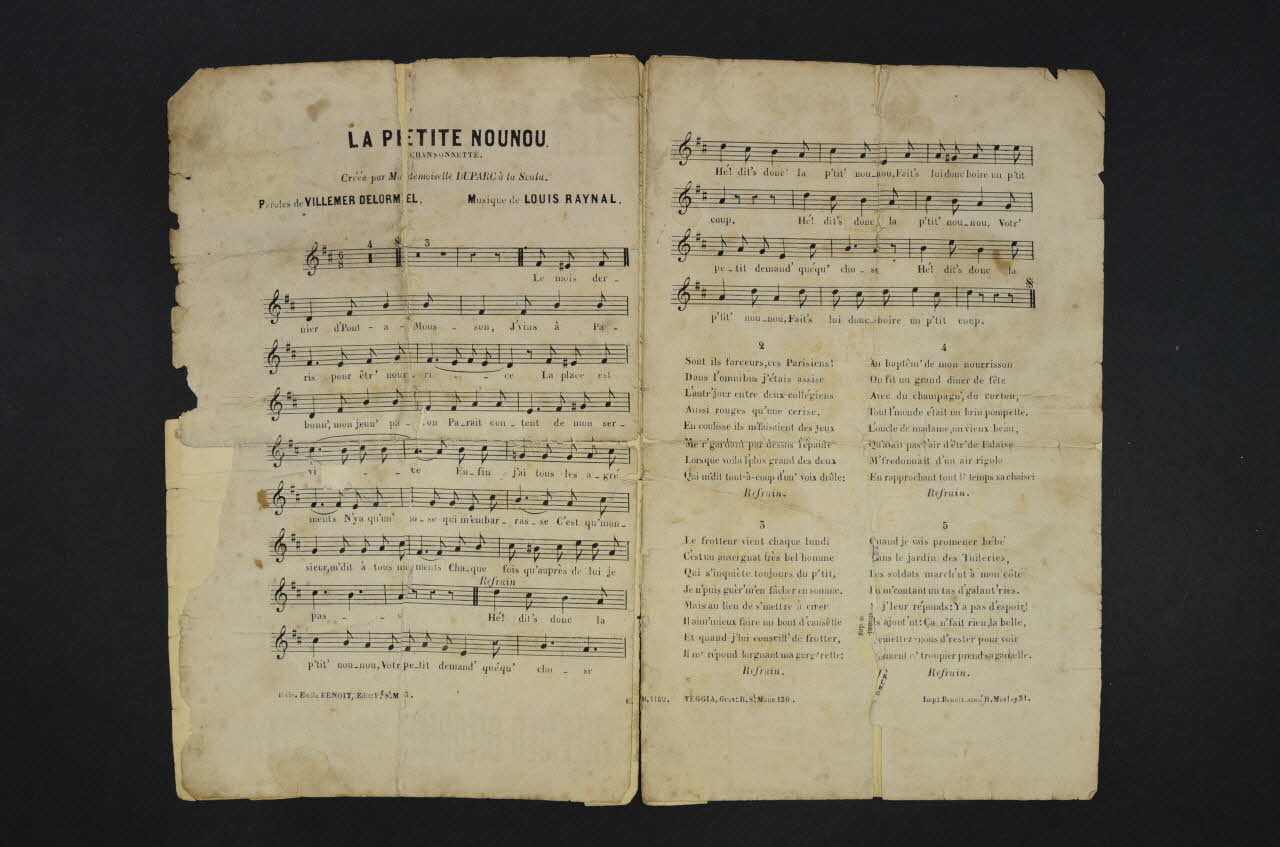 LA PETITE NOUNOU.
CHANSONNETTE.
Créée par Mademoiselle DUPARC à la Scala.
Paroles de VILLEMER DELORMEL. Musique de LOUIS RAYNAL.
4 3
Le mois der-
nier d'Pont-a-Mous-son, J'vins à Pa-
ris pour êtr' nour-ri-ce La place est
bonn', mon jeun' pa-on Parait con-tent de mon ser-
vi-ce En-fin j'ai tous les a-gré
ments N'ya qu'un' ose qui m'embar-ras-se C'est qu'mon-
sieur, m'dit à tous moments Cha-que fois qu'auprès de lui je
Refrain
pas- Hé! dit's donc la
p'tit' nou-nou, Votr' pe-tit demand' quéqu' cho-se
Emile BENOIT, Edit: Fg St M
Hé! dit's donc la p'tit' nou-nou, Fait's lui donc boire un p'tit
coup. Hé! dit's donc la p'tit' nou-nou, Votr'
pe-tit demand' quéqu' cho-se Hé! dit's donc la
p'tit' nou-nou, Fait's lui donc boire un p'tit coup.
2
Sont ils farceurs, ces Parisiens!
Dans l'omnibus j'étais assise
L'autr' jour entre deux collégiens
Aussi rouges qu'une cerise.
En coulisse ils m'faisaient des yeux
Me r'gardant par dessus l'épaule
Lorsque voilà l'plus grand des deux
Qui m'dit tout-à-coup d'un' voix drôle:
Refrain.
3
Le frotteur vient chaque lundi
C'est un auvergnat très bel homme
Qui s'inquiète toujours du p'tit,
Je n'puis guèr' m'en fâcher en somme.
Mais au lieu de s'mettre à cirer
Il aim' mieux faire un bout d'causette
Et quand j'lui conseill' de frotter,
Il me répond lorgnant ma gorg'rette:
Refrain.
4
Au baptêm' de mon nourrisson
On fit un grand diner de fête
Avec du champagn', du corton,
Tout l'monde était un brin pompette.
L'oncle de madame, un vieux beau,
Qu'avait pas l'air d'êtr' de Falaise
M'fredonnait d'un air rigolo
En rapprochant tout l' temps sa chaise:
Refrain.
5
Quand je vais promener bébé
Dans le jardin des Tuileries,
Les soldats march'nt à mon côté
En m'contant un tas d'galant'ries.
j'leur réponds: Y a pas d'espoir!
Ils ajout'nt: Ça n'fait rien, la belle,
emettez-nous d'rester pour voir
comment c' troupier prend sa gamelle.
Refrain.
1152. TEGGIA, Grav: R. St Maur 130. Imp: Benoit ainé R. Meslay 31.